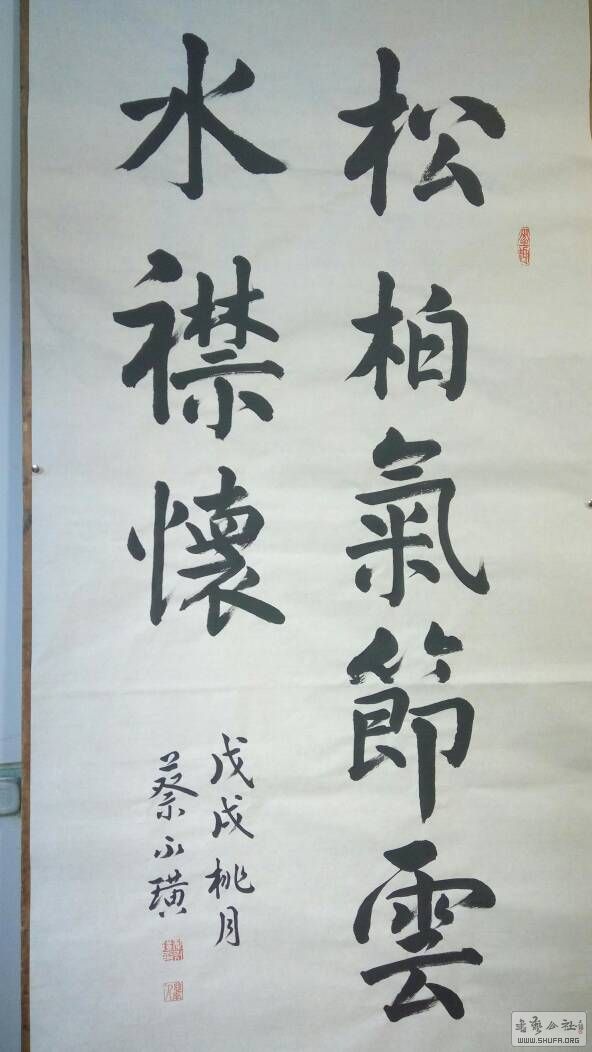 松柏氣節雲
水襟懷
戊戌桃月
蔡永璜
WWW.SHUFA.ORG